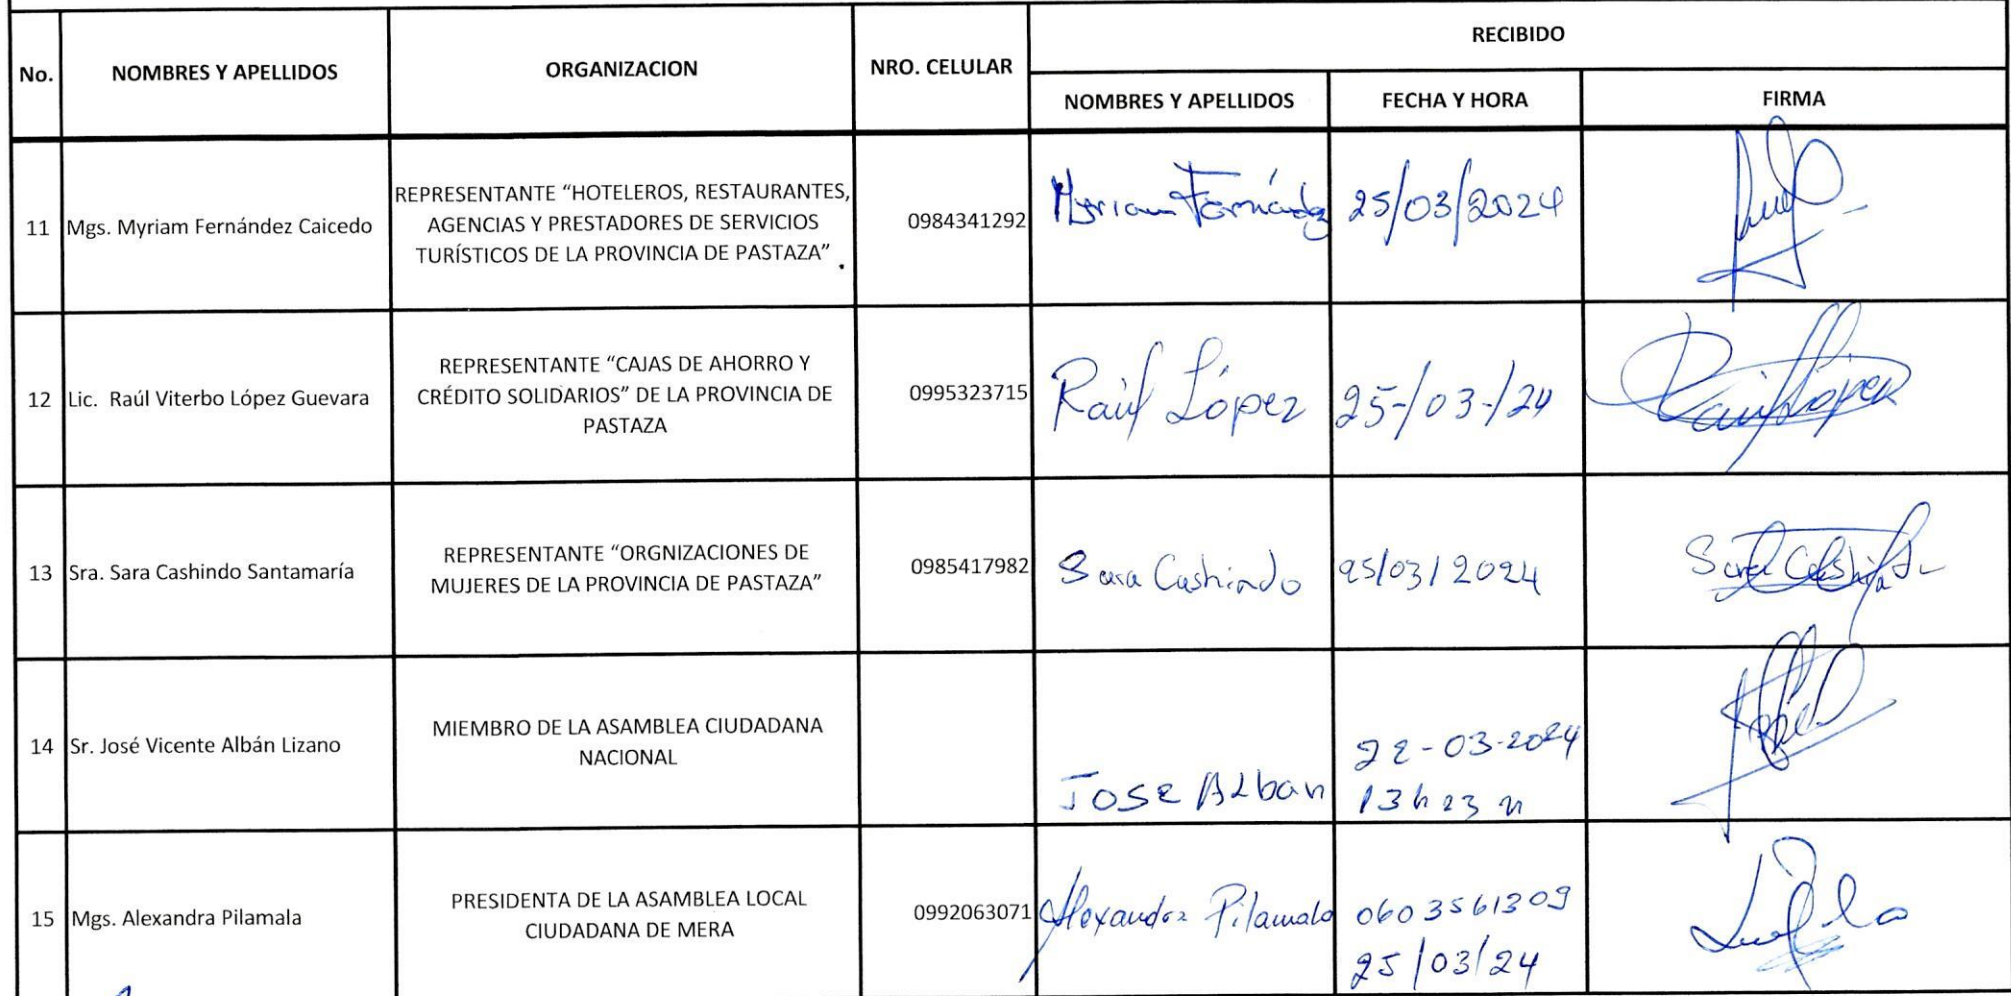 RECIBIDO
No. NOMBRES Y APELLIDOS ORGANIZACION NRO. CELULAR
NOMBRES Y APELLIDOS FECHA Y HORA FIRMA
11 Mgs. Myriam Fernández Caicedo
REPRESENTANTE “HOTELEROS, RESTAURANTES,
AGENCIAS Y PRESTADORES DE SERVICIOS
TURÍSTICOS DE LA PROVINCIA DE PASTAZA”
0984341292
Myriam Fernández
25/03/2024
12 Lic. Raúl Viterbo López Guevara
REPRESENTANTE “CAJAS DE AHORRO Y
CRÉDITO SOLIDARIOS” DE LA PROVINCIA DE
PASTAZA
0995323715
Raúl López
25-/03-/24
Raúl López
13 Sra. Sara Cashindo Santamaría
REPRESENTANTE “ORGNIZACIONES DE
MUJERES DE LA PROVINCIA DE PASTAZA”
0985417982
Sara Cashindo
25/03/2024
Sara Cashindo
14 Sr. José Vicente Albán Lizano
MIEMBRO DE LA ASAMBLEA CIUDADANA
NACIONAL
JOSE ALban
22-03-2024
13h23
15 Mgs. Alexandra Pilamala
PRESIDENTA DE LA ASAMBLEA LOCAL
CIUDADANA DE MERA
0992063071
Alexandra Pilamala
0603561309
25/03/24